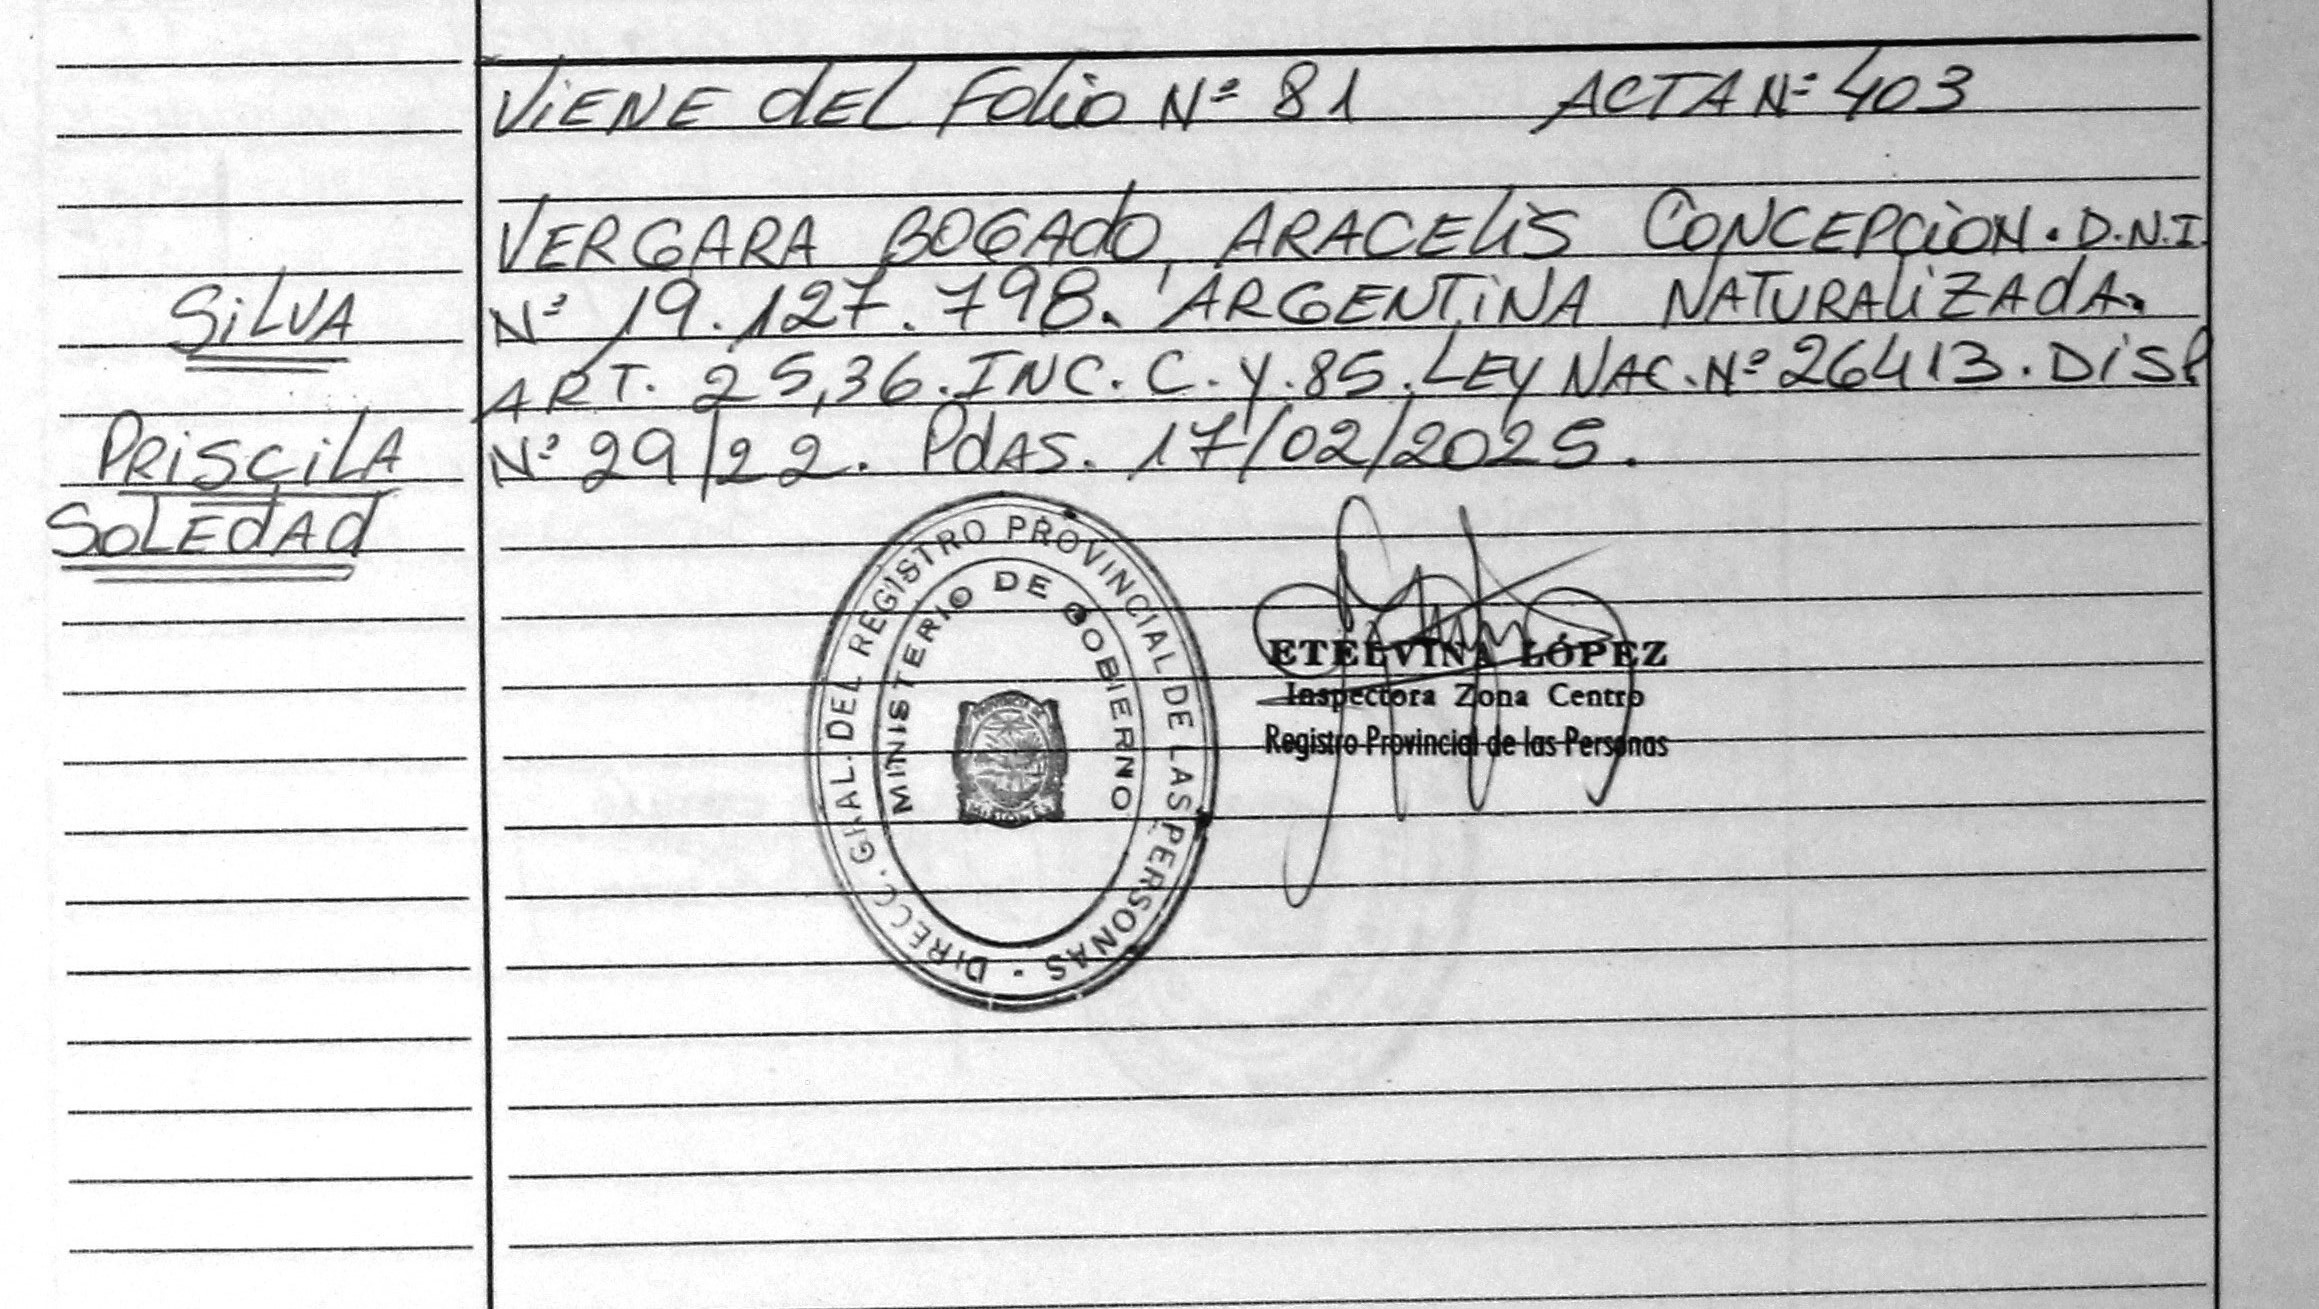 VIENE DEL FOLIO Nº 81 ACTA Nº 403
VERGARA BOGADO, ARACELIS CONCEPCION. D.N.I.
Nº 19.127.798. ARGENTINA NATURALIZADA.
ART. 25,36. INC. C. Y. 85. LEY NAC. Nº 26413. DISP
Nº 29/22. PdAS. 17/02/2025.
SILVA
PRISCILA
SOLEDAD
DIRECC. GRAL. DEL REGISTRO PROVINCIAL DE LAS PERSONAS -
MINISTERIO DE GOBIERNO
ETELVINA LÓPEZ
Inspectora Zona Centro
Registro Provincial de las Personas